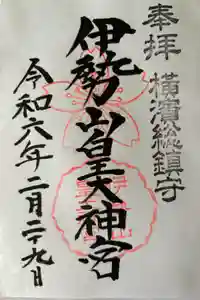 奉拝 横濱総鎮守
伊勢山皇大神宮
令和六年二月二十九日